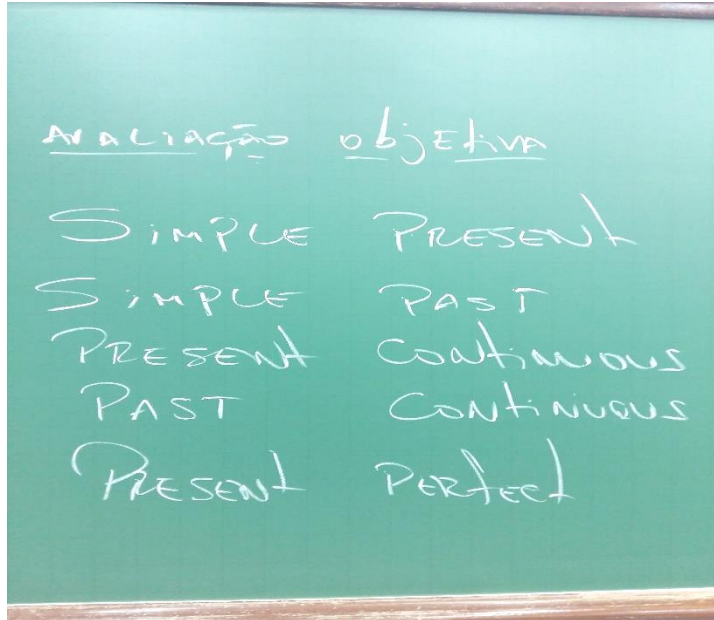 AVALIAÇÃO ObjEtiVA
SiMPLE PRESENt
SiMPLE PAST
PRESENt CONtiNUOUS
PAST CONtiNUOUS
PRESENt PERfEct